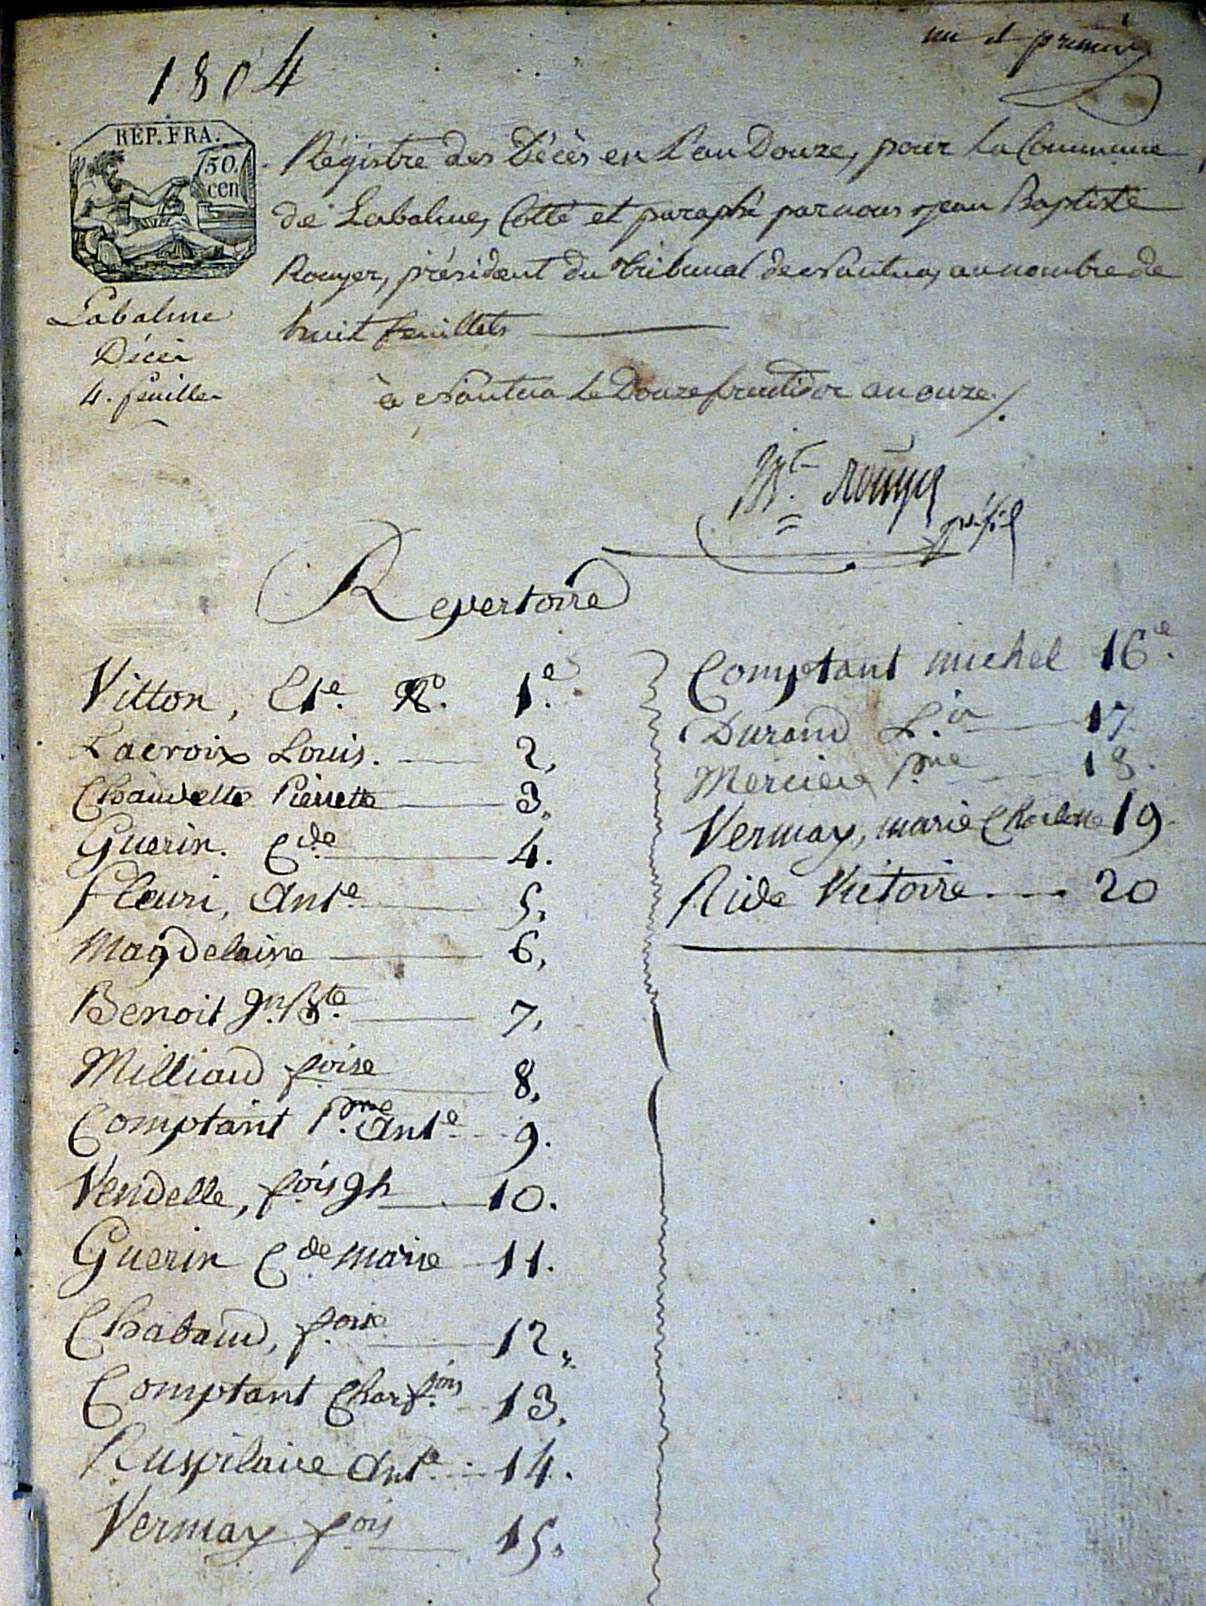 1804
un et premier
RÉP. FRA.
50.
cen
Régistre des Décès en L'an Douze, pour La Commune
de Labalme, Cotté et paraphé par nous jean Baptiste
Rouyer, président du tribunal de Nantua, au nombre de
huit feuillets
Labalme
Décès
4. feuilles
à Nantua Le Douze fructidor an onze.
Bte Rouyer
Repertoire
Vitton, Ete. 1e.
Lacroix Louis. 2,
Chaudelle Pierrette 3.
Guerin. Cde 4.
fleuri, Ante 5.
Magdelaine 6,
Benoit Jn Bte 7,
Milliand foise 8,
Comptant Pre Ante 9.
Vendelle, fois Jh 10.
Guerin Cde marie 11.
Chabaud, foise 12,
Comptant Char. fois 13.
Ruspilaire Ante 14.
Vermay fois 15.
Comptant michel 16e.
Durand 17
Mercier Pre 18.
Vermay, marie Charlotte 19
Ride Victoire 20